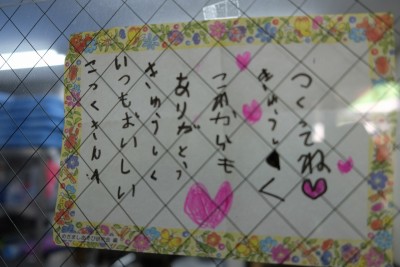 いつもおいしい
きゅうしょく
ありがとう
これからも
きゅうしょく
つくってね